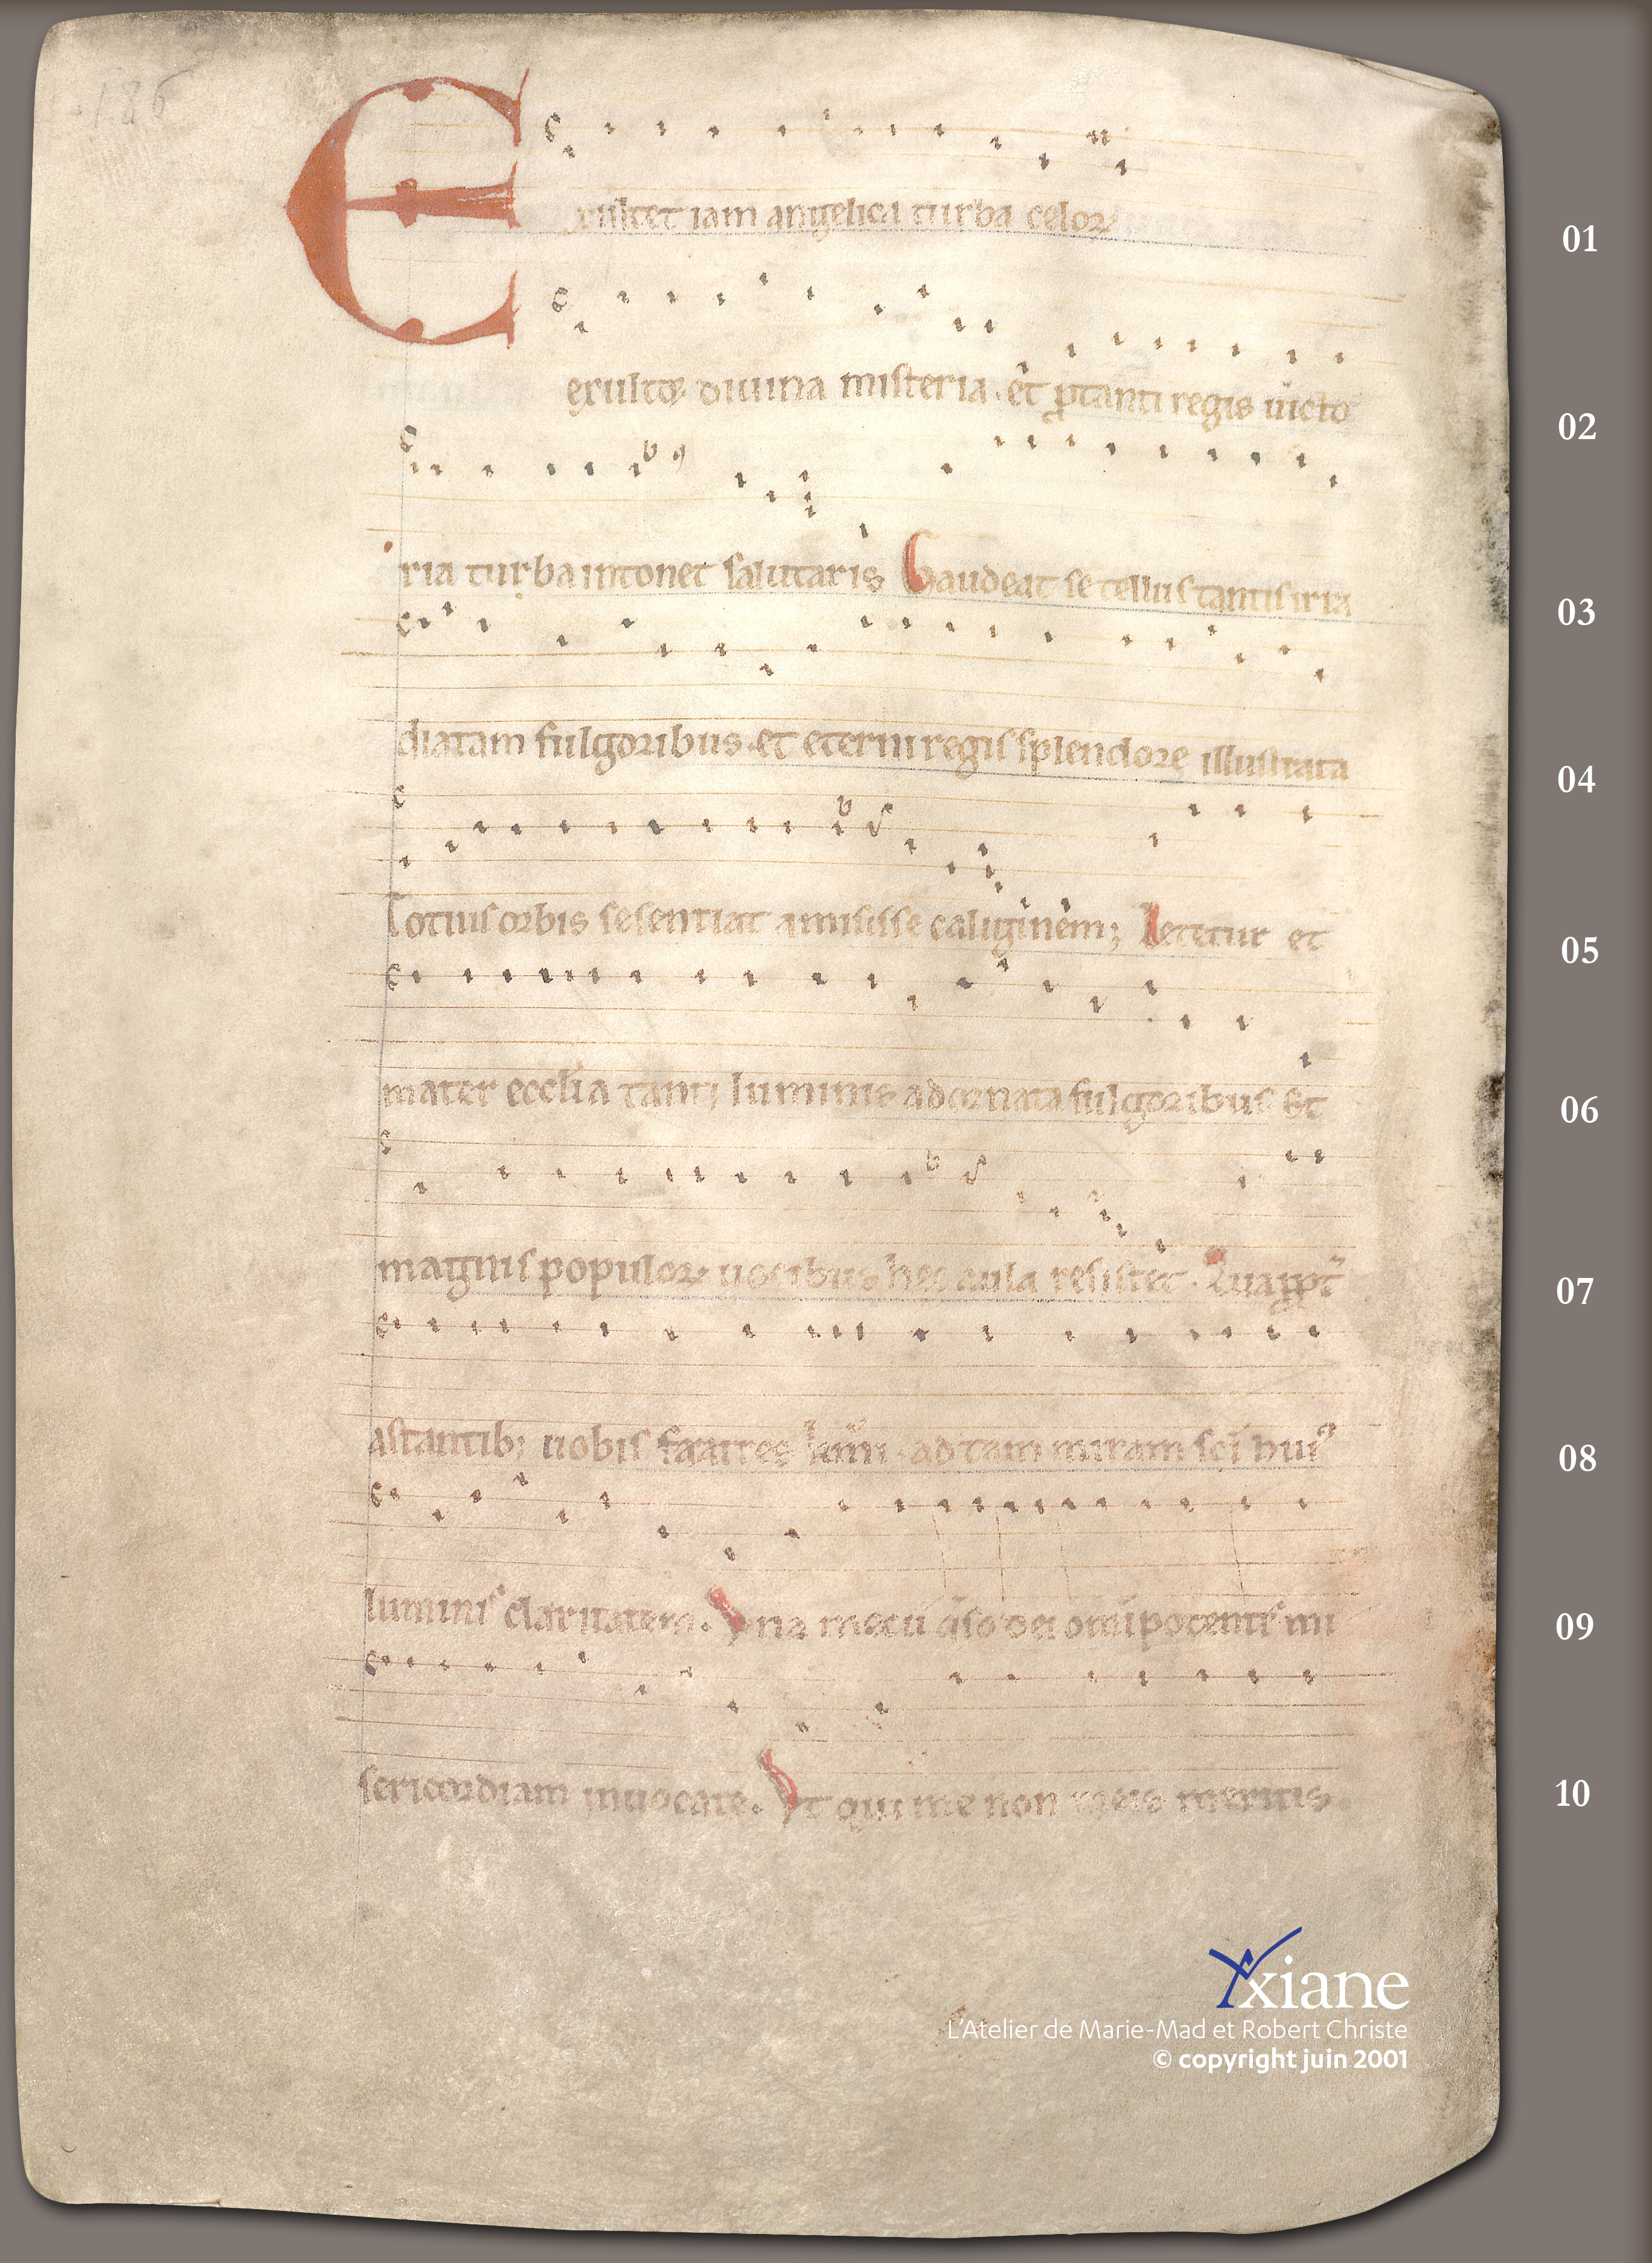 186
Exultet iam angelica turba celoꝝ 01
exultēt diuina misteria. et ꝓ tanti regis uicto 02
ria turba intonet salutaris Gaudeat se tellus tantis irra 03
diatam fulgoribus. et eterni regis splendore illustrata 04
Totius orbis se sentiat amisisse caliginem; Letetur et 05
mater ecclīa tanti luminis adornata fulgoribus Et 06
magnis populoꝝ uocibus hęc aula resultet. Quapropt̄ 07
astantib; uobis fratres ad tam miram sc̄i huiꝰ 08
luminis claritatem. Vna mecū q̄so dei om̄ipotentis mi 09
sericordiam inuocate. Vt qui me non meis meritis. 10
Yxiane
L'Atelier de Marie-Mad et Robert Christe
© copyright juin 2001